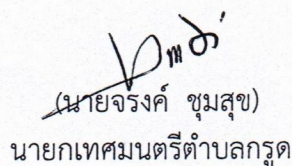 (นายจรงค์ ชุมสุข)
นายกเทศมนตรีตำบลกรูด